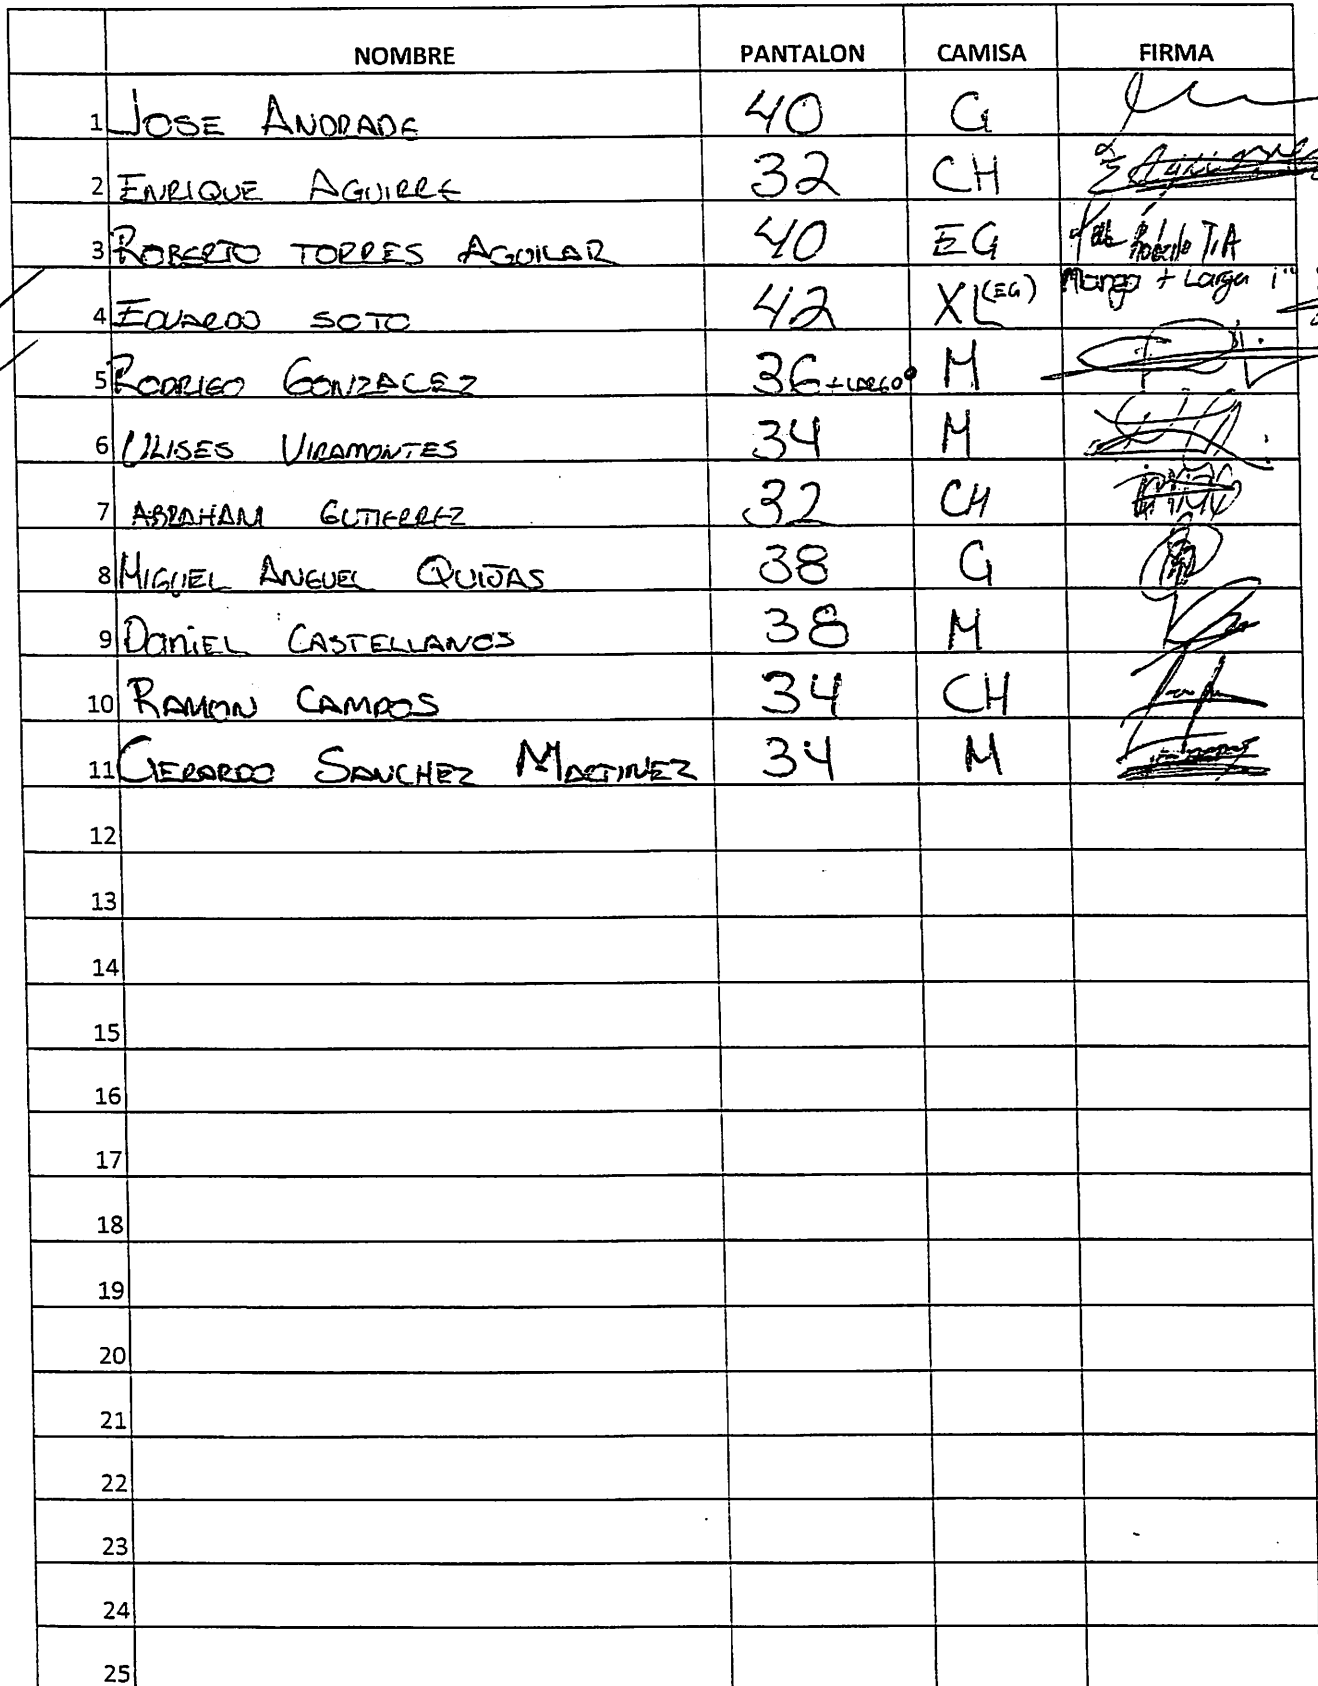 NOMBRE PANTALON CAMISA FIRMA
1 JOSE ANDRADE 40 G
2 ENRIQUE AGUIRRE 32 CH
3 ROBERTO TORRES AGUILAR 40 EG
4 EDUARDO SOTO 42 XL (EG) Manga + Larga 1"
5 RODRIGO GONZALEZ 36 + LARGO M
6 ULISES VIRAMONTES 34 M
7 ABRAHAM GUTIERREZ 32 CH
8 MIGUEL ANGUEL QUIJAS 38 G
9 DANIEL CASTELLANOS 38 M
10 RAMON CAMPOS 34 CH
11 GERARDO SANCHEZ MARTINEZ 34 M
12
13
14
15
16
17
18
19
20
21
22
23
24
25